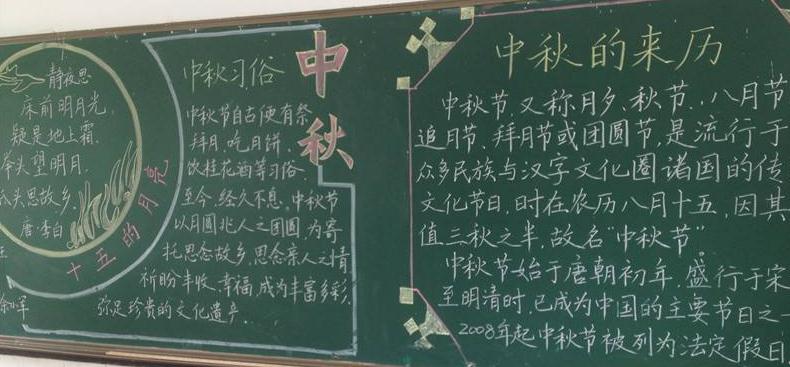 静夜思
床前明月光,
疑是地上霜.
举头望明月,
低头思故乡.
唐·李白
十五的月亮
中秋
中秋习俗
中秋节自古便有祭
拜月、吃月饼、
饮桂花酒等习俗,
至今,经久不息.中秋节
以月圆兆人之团圆,为寄
托思念故乡,思念亲人之情
祈盼丰收、幸福,成为丰富多彩、
弥足珍贵的文化遗产.
中秋的来历
中秋节,又称月夕、秋节、八月节
追月节、拜月节或团圆节,是流行于
众多民族与汉字文化圈诸国的传
文化节日,时在农历八月十五,因其
值三秋之半,故名“中秋节”
中秋节始于唐朝初年,盛行于宋
至明清时,已成为中国的主要节日之一
2008年起中秋节被列为法定假日.